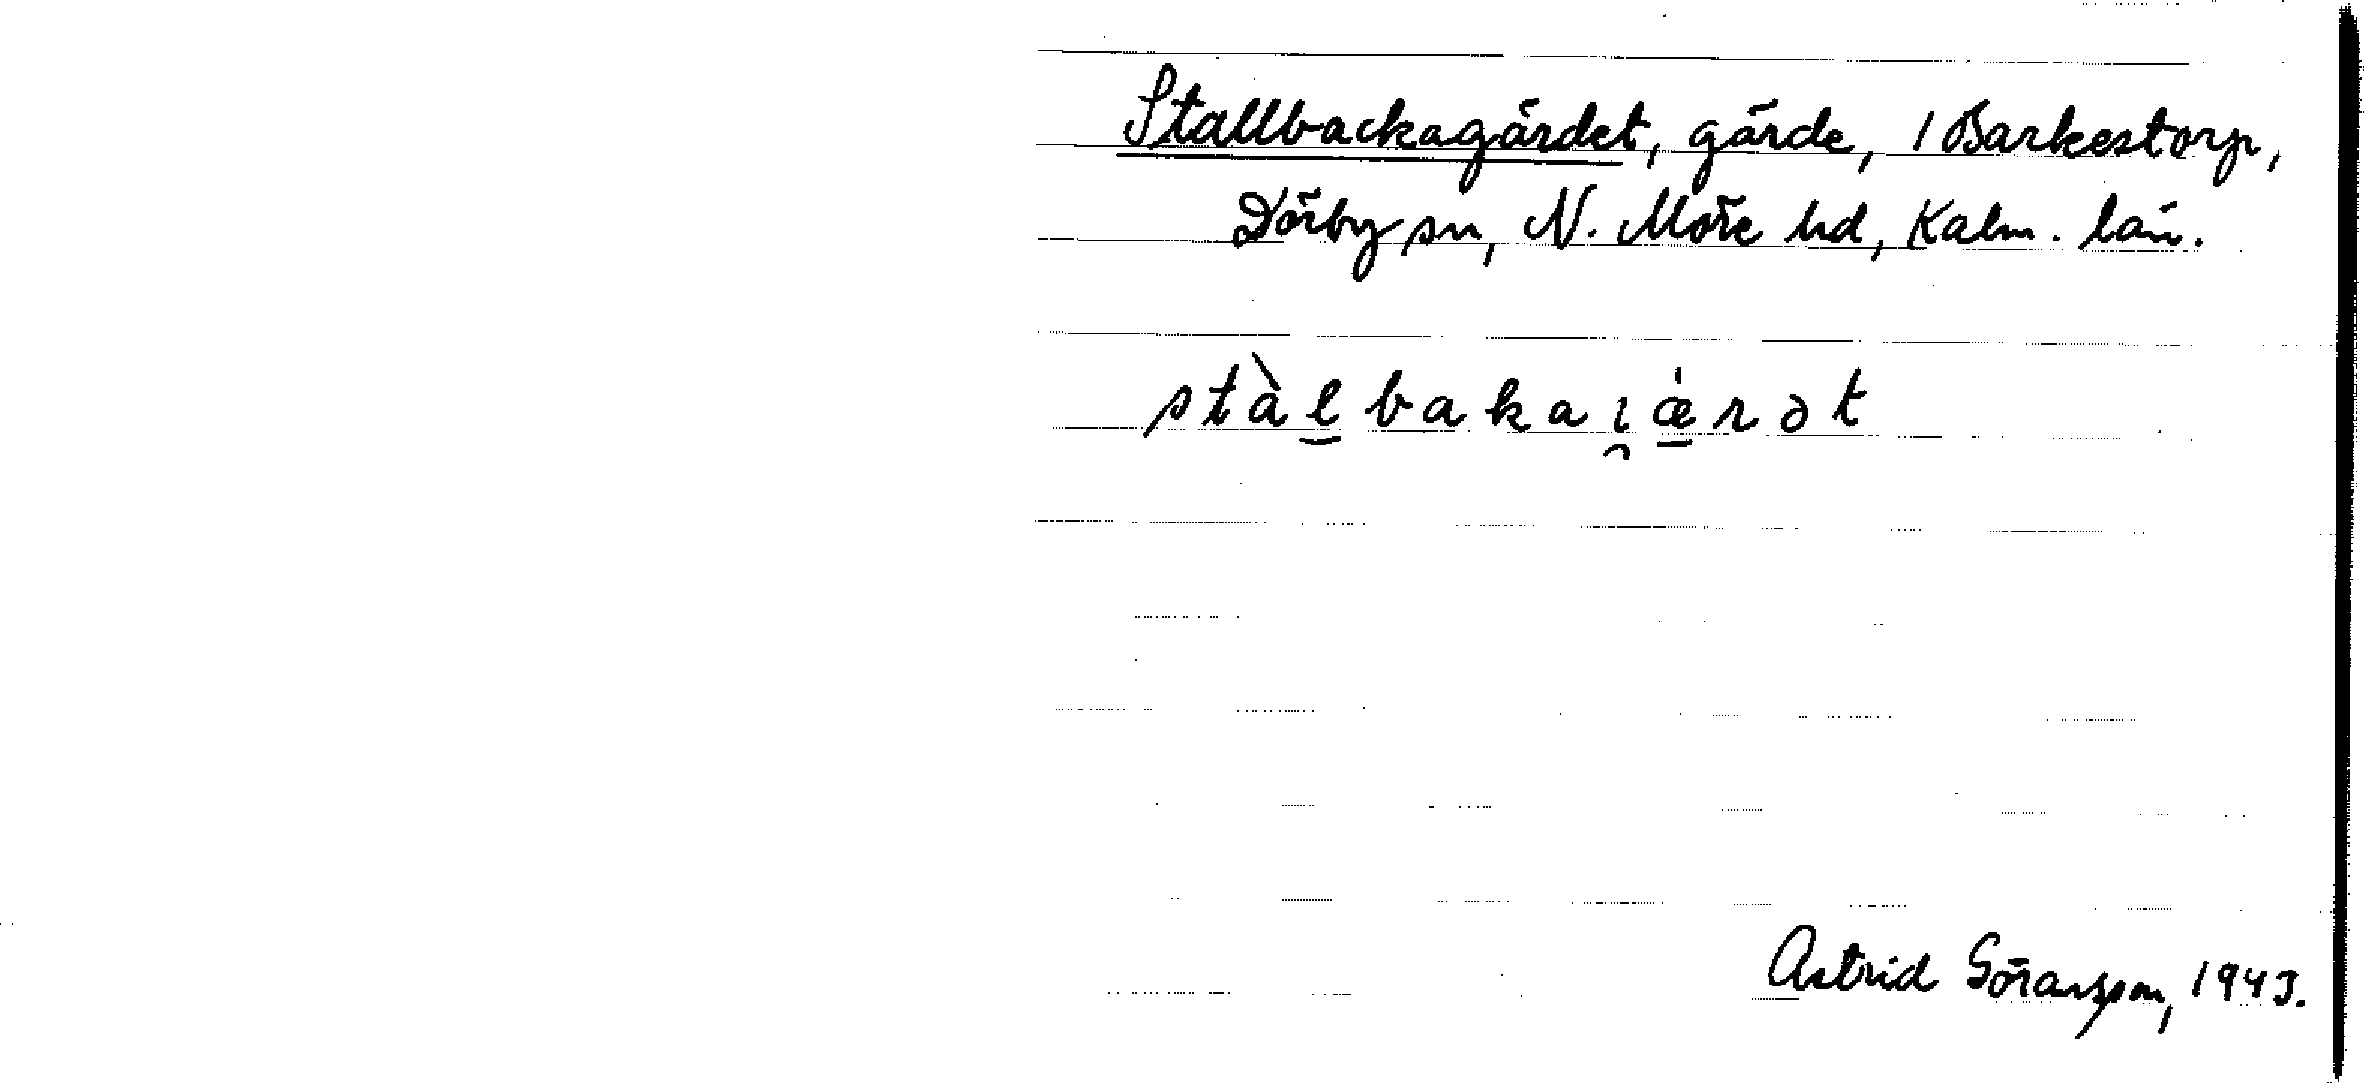 Stallbackagärdet, gärde, 1 Barkestorp,
Dörby sn, N. Möre hd, Kalm. län.
stàl̲bakaı̯æ̲̇rət
Astrid Göransson, 1943.